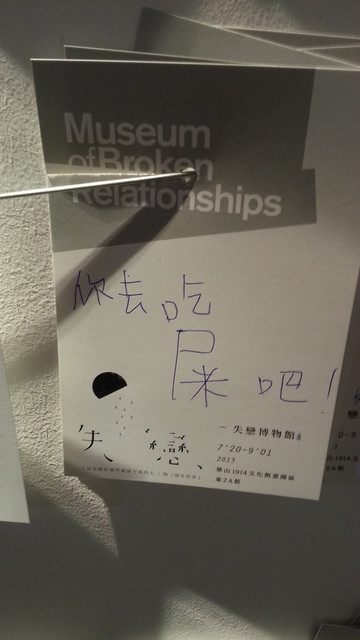 Museum
ofBroken
Relationships
你去吃
屎吧!
失戀
失戀博物館
7'20-9'01
2013
華山1914文化創意園區
東2A館